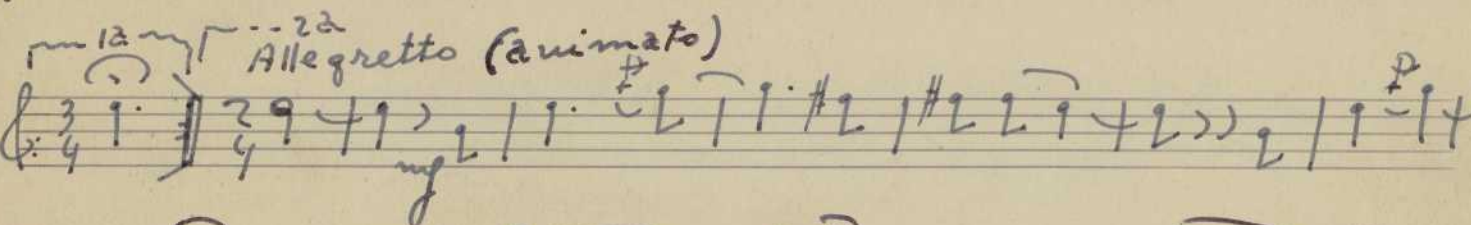 1a 2a
Allegretto (animato)
3/4 2/4
mf